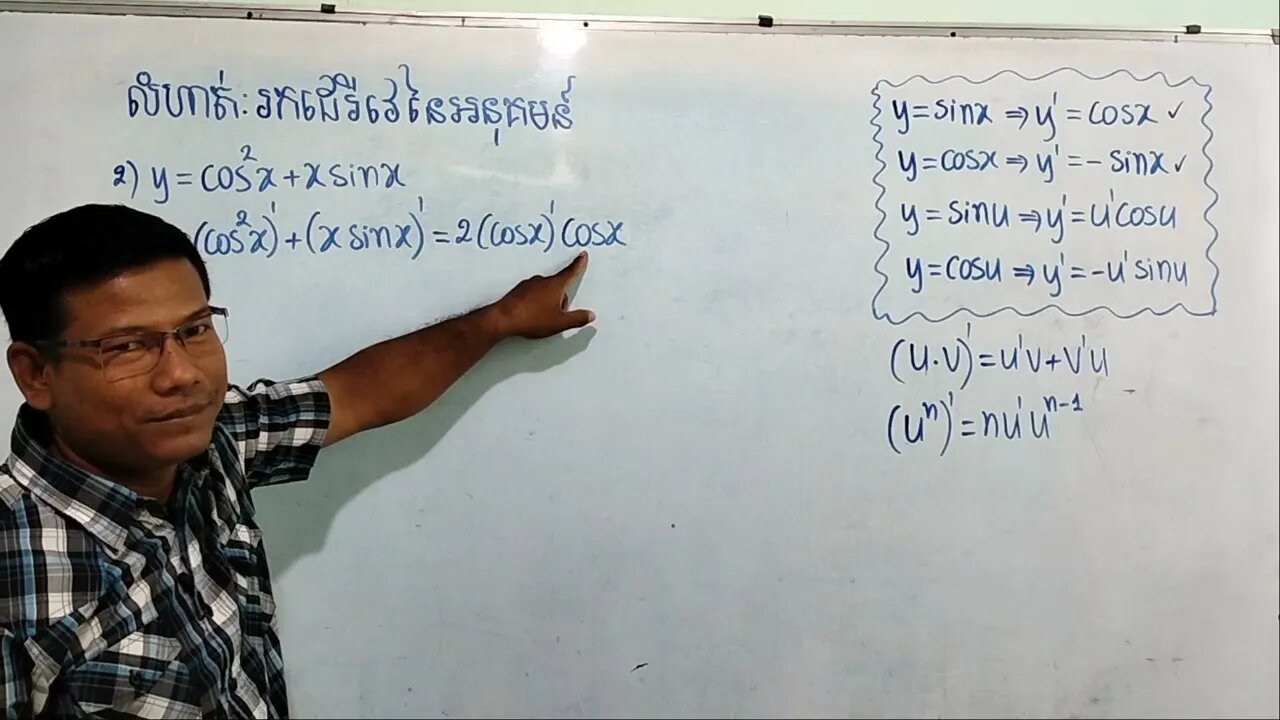 លំហាត់: រកដេរីវេនៃអនុគមន៍
2) y = cos²x + x sinx
(cos²x)' + (x sinx)' = 2(cosx)' cosx
y = sinx ⇒ y' = cosx ✓
y = cosx ⇒ y' = - sinx ✓
y = sinu ⇒ y' = u' cosu
y = cosu ⇒ y' = -u' sinu
(u·v)' = u'v + v'u
(uⁿ)' = nu'uⁿ⁻¹